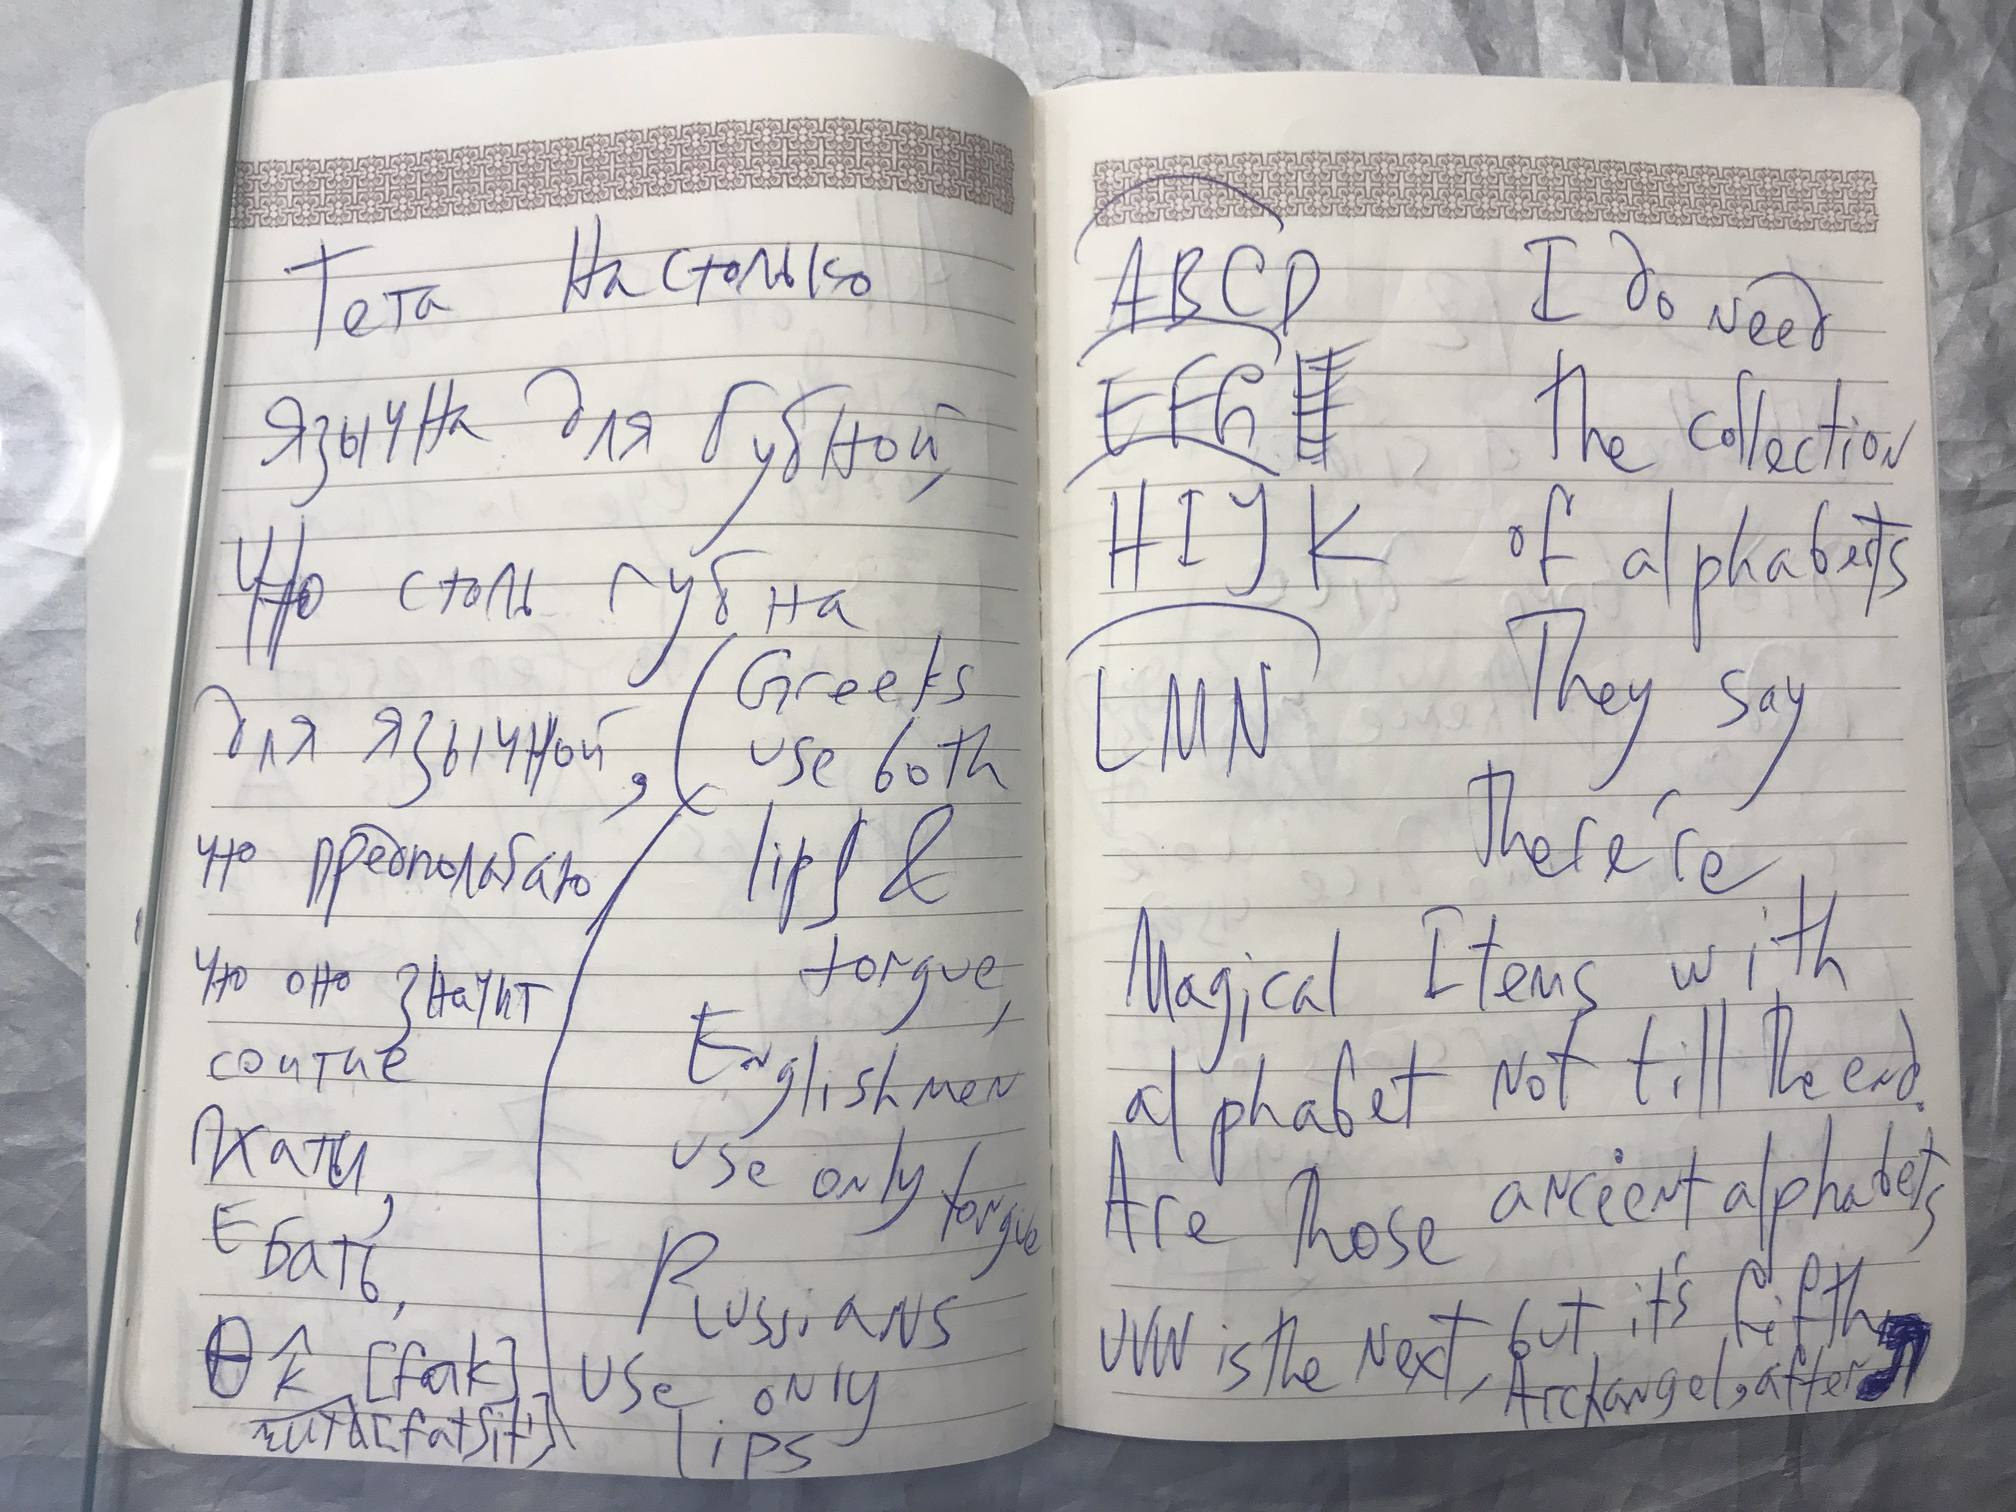 Тета настолько
язычна для губной,
что столь губна
для язычной,
что предполагаю
что оно значит
соитие
Пхати,
Ебать,
Θ k [fak]
[fatʃit]
(Greeks
use both
lips &
tongue,
Englishmen
use only tongue
Russians
use only
lips
ABCD
EFG
HIJK
LMN
I do need
the collection
of alphabets
They say
there're
Magical Items with
alphabet not till the end.
Are those ancient alphabets
UVW is the next, but it's fifth
Archangel, after